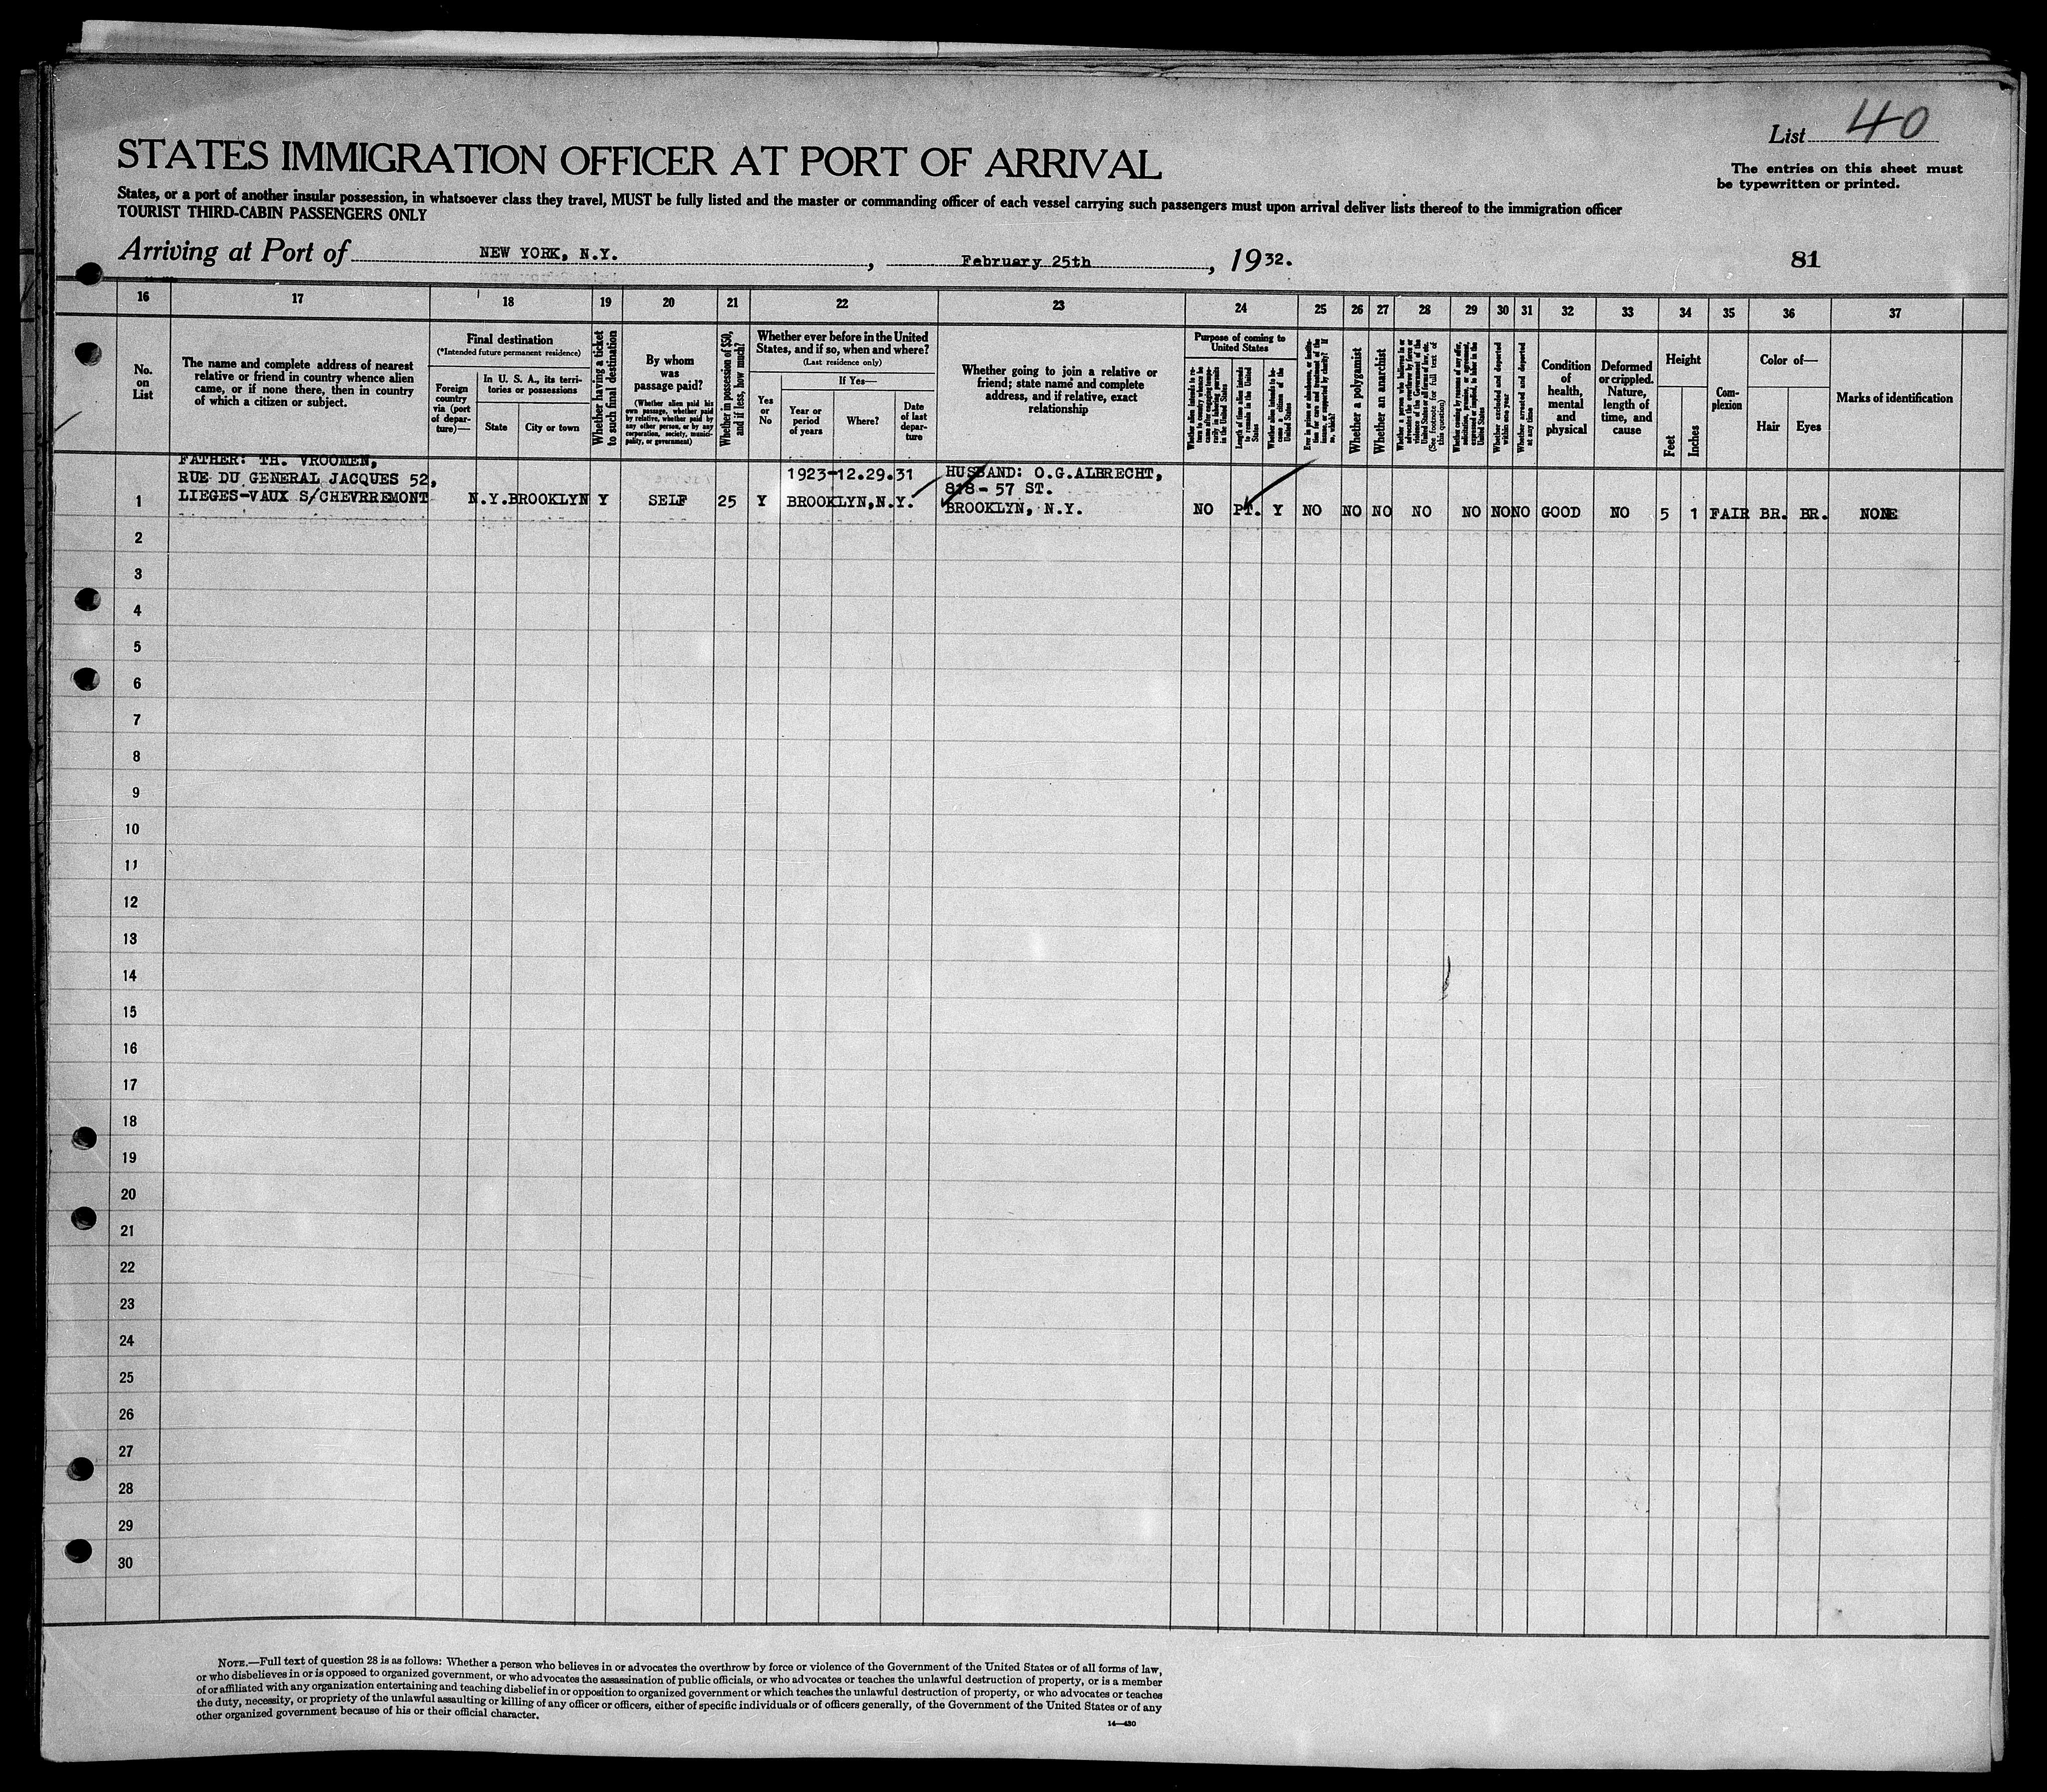 List 40
STATES IMMIGRATION OFFICER AT PORT OF ARRIVAL
The entries on this sheet must
be typewritten or printed.
States, or a port of another insular possession, in whatsoever class they travel, MUST be fully listed and the master or commanding officer of each vessel carrying such passengers must upon arrival deliver lists thereof to the immigration officer
TOURIST THIRD-CABIN PASSENGERS ONLY
Arriving at Port of NEW YORK, N.Y., February 25th, 1932. 81
16 17 18 19 20 21 22 23 24 25 26 27 28 29 30 31 32 33 34 35 36 37
No.
on
List
The name and complete address of nearest
relative or friend in country whence alien
came, or if none there, then in country
of which a citizen or subject.
Final destination
(*Intended future permanent residence)
Foreign
country
via (port
of depar-
ture)—
In U. S. A., its terri-
tories or possessions
State
City or town
Whether having a ticket
to such final destination
By whom
was
passage paid?
(Whether alien paid his
own passage, whether paid
by relative, whether paid by
any other person, or by any
corporation, society, munici-
pality, or government)
Whether in possession of $50,
and if less, how much?
Whether ever before in the United
States, and if so, when and where?
(Last residence only)
Yes
or
No
If Yes—
Year or
period
of years
Where?
Date
of last
depar-
ture
Whether going to join a relative or
friend; state name and complete
address, and if relative, exact
relationship
Purpose of coming to
United States
Whether alien intends to re-
turn to country whence he
came after engaging tempo-
rarily in laboring pursuits
in the United States
Length of time alien intends
to remain in the United
States
Whether alien intends to be-
come a citizen of the
United States
Ever in prison or almshouse, or institu-
tion for care and treatment of the
insane, or supported by charity? If
so, which?
Whether a polygamist
Whether an anarchist
Whether a person who believes in or
advocates the overthrow by force or
violence of the Government of the
United States or all forms of law, etc.
(See footnote for full text of
this question)
Whether coming by reason of any offer,
solicitation, promise, or agreement,
expressed or implied, to labor in the
United States
Whether excluded and deported
within one year
Whether arrested and deported
at any time
Condition
of
health,
mental
and
physical
Deformed
or crippled.
Nature,
length of
time, and
cause
Height
Feet
Inches
Com-
plexion
Color of—
Hair
Eyes
Marks of identification
FATHER: TH. VROOMEN,
RUE DU GENERAL JACQUES 52,
LIEGES-VAUX S/CHEVRREMONT
1923-12.29.31
HUSBAND: O.G.ALBRECHT,
818- 57 ST.
BROOKLYN, N.Y.
1 N.Y. BROOKLYN Y SELF 25 Y BROOKLYN,N.Y. NO PT. Y NO NO NO NO NO NO NO GOOD NO 5 1 FAIR BR. BR. NONE
2
3
4
5
6
7
8
9
10
11
12
13
14
15
16
17
18
19
20
21
22
23
24
25
26
27
28
29
30
NOTE.—Full text of question 28 is as follows: Whether a person who believes in or advocates the overthrow by force or violence of the Government of the United States or of all forms of law,
or who disbelieves in or is opposed to organized government, or who advocates the assassination of public officials, or who advocates or teaches the unlawful destruction of property, or is a member
of or affiliated with any organization entertaining and teaching disbelief in or opposition to organized government or which teaches the unlawful destruction of property, or who advocates or teaches
the duty, necessity, or propriety of the unlawful assaulting or killing of any officer or officers, either of specific individuals or of officers generally, of the Government of the United States or of any
other organized government because of his or their official character.
14—430